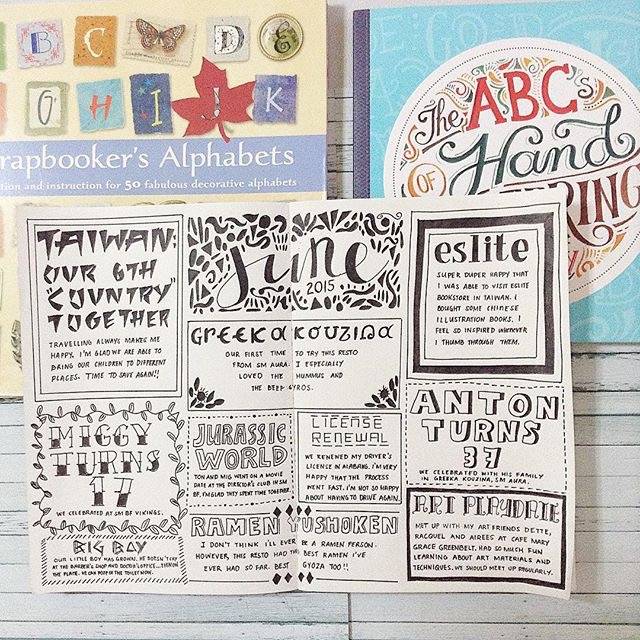 B C D E
G H I J K
rapbooker's Alphabets
tion and instruction for 50 fabulous decorative alphabets
The ABCs
OF Hand
ERING
TAIWAN:
OUR 6TH
"COUNTRY"
TOGETHER
TRAVELLING ALWAYS MAKES ME
HAPPY. I'M GLAD WE ARE ABLE TO
BRING OUR CHILDREN TO DIFFERENT
PLACES. TIME TO SAVE AGAIN!!
MIGGY
TURNS
17
WE CELEBRATED AT SM BF VIKINGS.
BIG BOY
OUR LITTLE BOY HAS GROWN. HE DOESN'T CRY
AT THE BARBER'S SHOP AND DOCTOR'S OFFICE...
THE PLATE. WE CAN POOP IN THE TOILET NOW.
june
2015
GREEKA KOUZINA
OUR FIRST TIME TO TRY THIS RESTO
FROM SM AURA. I ESPECIALLY
LOVED THE HUMMUS AND
THE BEEF GYROS.
JURASSIC
WORLD
TON AND MIG WENT ON A MOVIE
DATE AT THE DIRECTOR'S CLUB IN SM
BF. I'M GLAD THEY SPENT TIME TOGETHER.
LICENSE
RENEWAL
WE RENEWED MY DRIVER'S
LICENSE IN ALABANG. I'M VERY
HAPPY THAT THE PROCESS
WENT FAST. I'M NOT SO HAPPY
ABOUT HAVING TO DRIVE AGAIN.
RAMEN YUSHOKEN
I DON'T THINK I'LL EVER BE A RAMEN PERSON.
HOWEVER, THIS RESTO HAD THE BEST RAMEN I'VE
EVER HAD SO FAR. BEST GYOZA TOO!!
eslite
SUPER DUPER HAPPY THAT
I WAS ABLE TO VISIT ESLITE
BOOKSTORE IN TAIWAN. I
BOUGHT SOME CHINESE
ILLUSTRATION BOOKS. I
FEEL SO INSPIRED WHENEVER
I THUMB THROUGH THEM.
ANTON
TURNS
37
WE CELEBRATED WITH HIS FAMILY
IN GREEKA KOUZINA, SM AURA.
ART PLAYDATE
MET UP WITH MY ART FRIENDS DETTE,
RACQUEL AND AIREES AT CAFE MARY
GRACE GREENBELT. HAD SO MUCH FUN
LEARNING ABOUT ART MATERIALS AND
TECHNIQUES. WE SHOULD MEET UP REGULARLY.